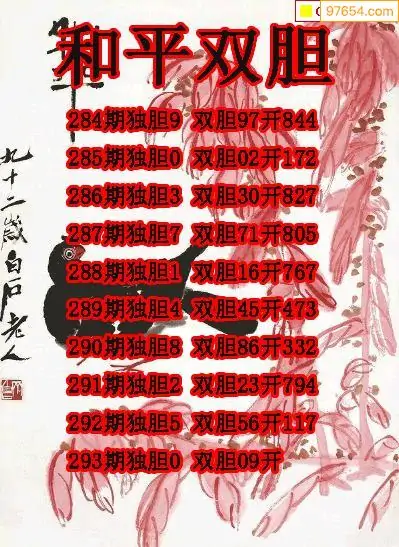 97654.com
和平双胆
284期独胆9 双胆97开844
285期独胆0 双胆02开172
286期独胆3 双胆30开827
287期独胆7 双胆71开805
288期独胆1 双胆16开767
289期独胆4 双胆45开473
290期独胆8 双胆86开332
291期独胆2 双胆23开794
292期独胆5 双胆56开117
293期独胆0 双胆09开
九十二岁白石老人